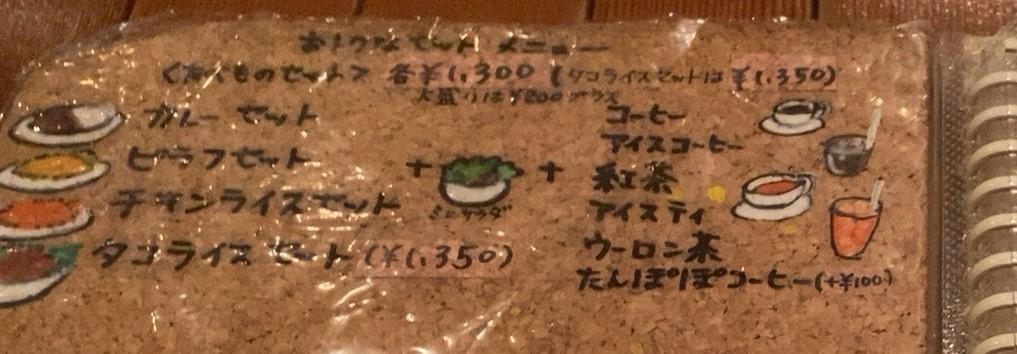 おトクなセット メニュー
<たべものセット> 各¥1,300 (タコライスセットは ¥1,350)
大盛りは¥200プラス
カレー セット
ピラフセット
チキンライスセット
タコライス セット (¥1,350)
+
ミニサラダ
+
コーヒー
アイスコーヒー
紅茶
アイスティ
ウーロン茶
たんぽぽコーヒー(+¥100)